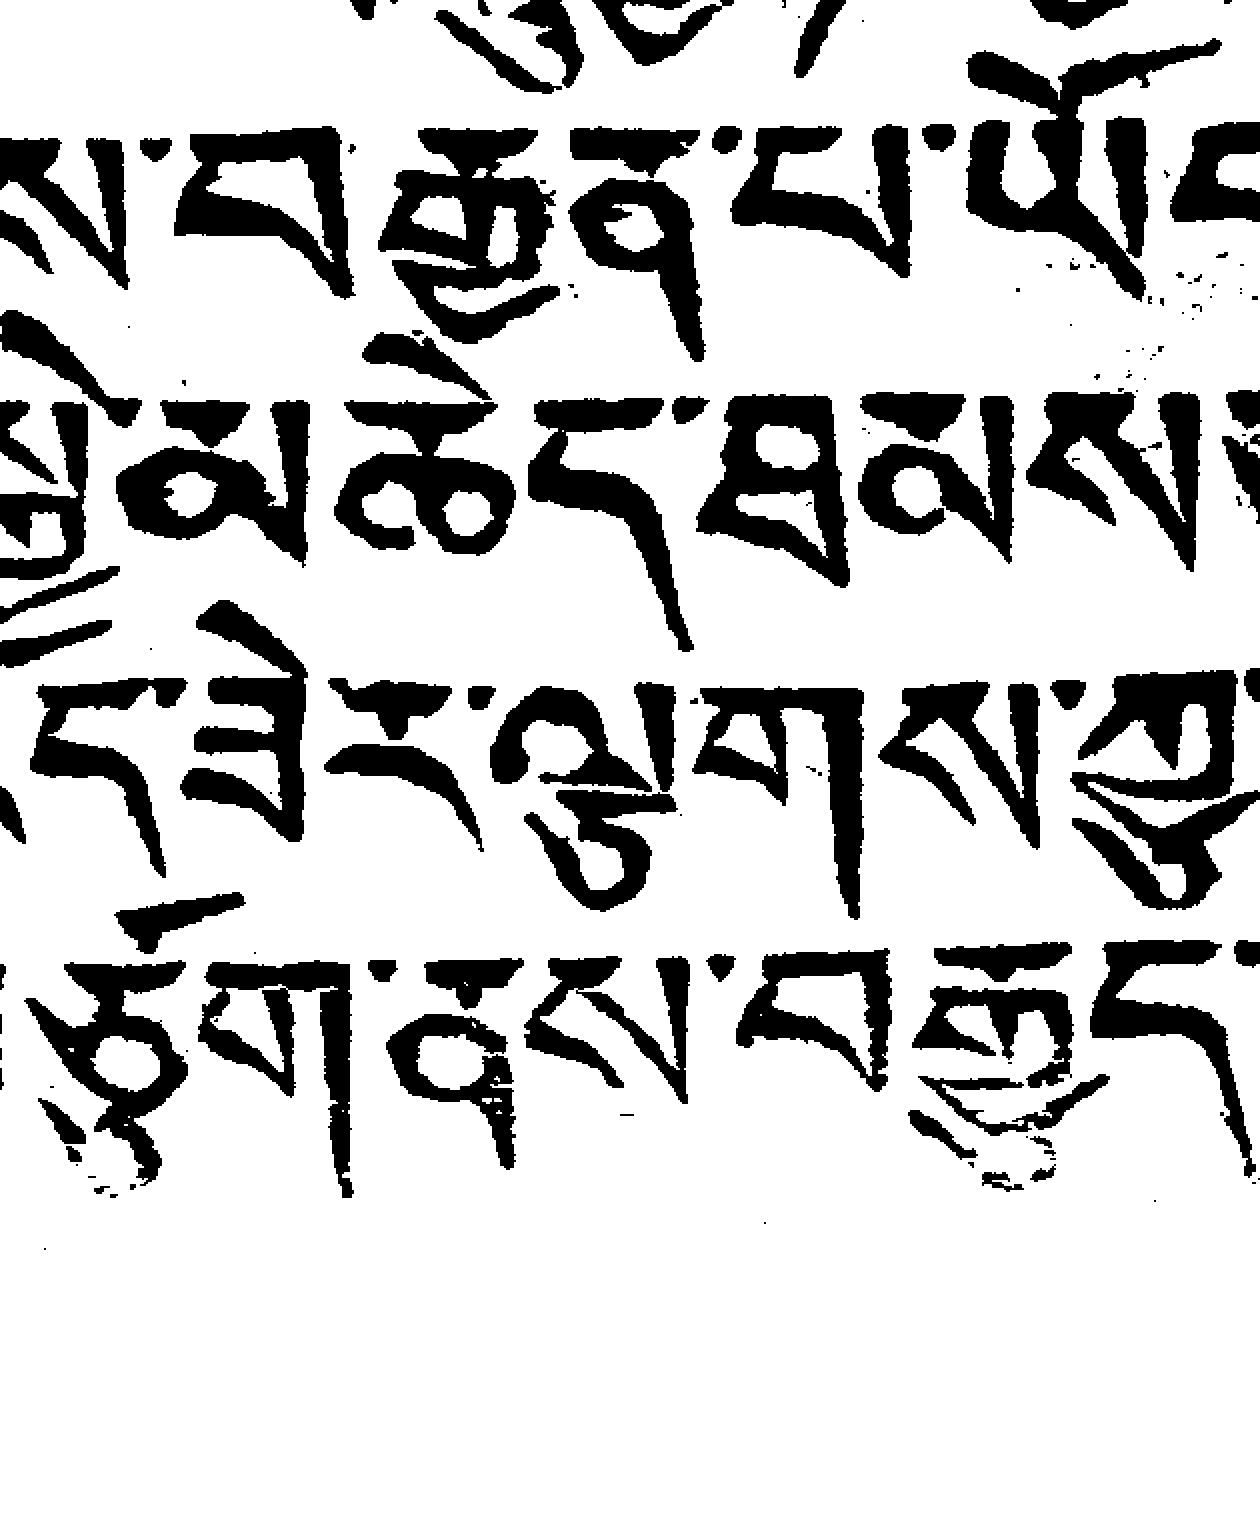 ས་བརྒྱན་པ་ཡོ
མཆེད་ཐམས
ད་ཟེར་ལྕགས་ཀྱུ
ཙུག་ནས་བརྒྱུད་